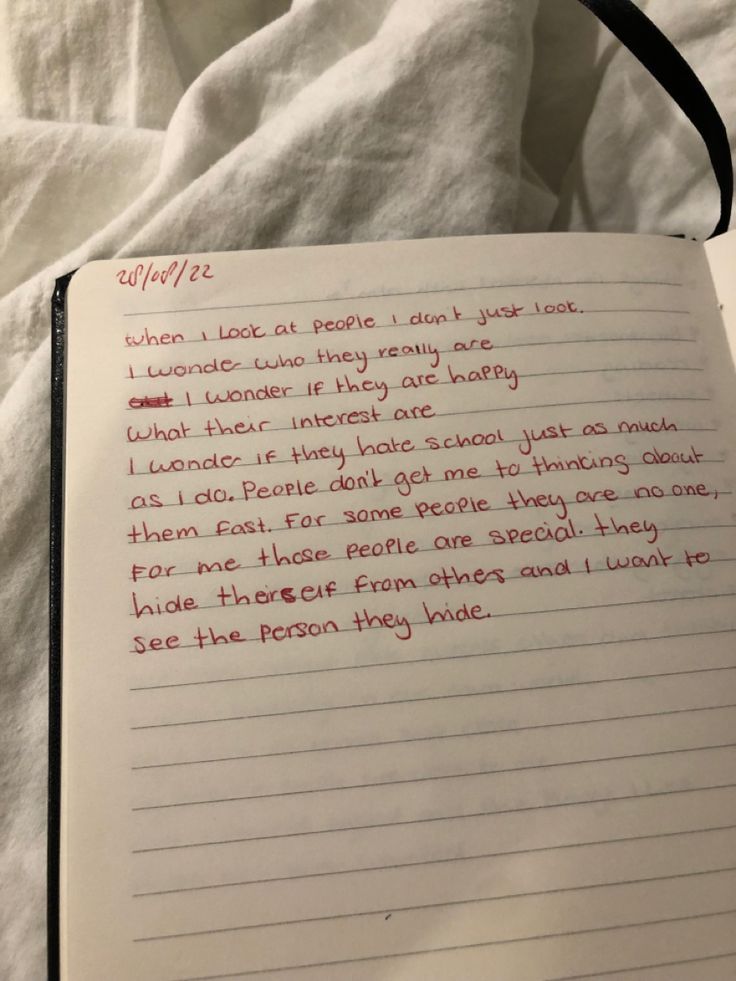 28/08/22
when I Look at people I don't just look.
I wonder who they really are
I wonder if they are happy
what their interest are
I wonder if they hate school just as much
as I do. People don't get me to thinking about
them fast. For some people they are no one,
For me those people are special. they
hide theirself from others and I want to
see the person they hide.